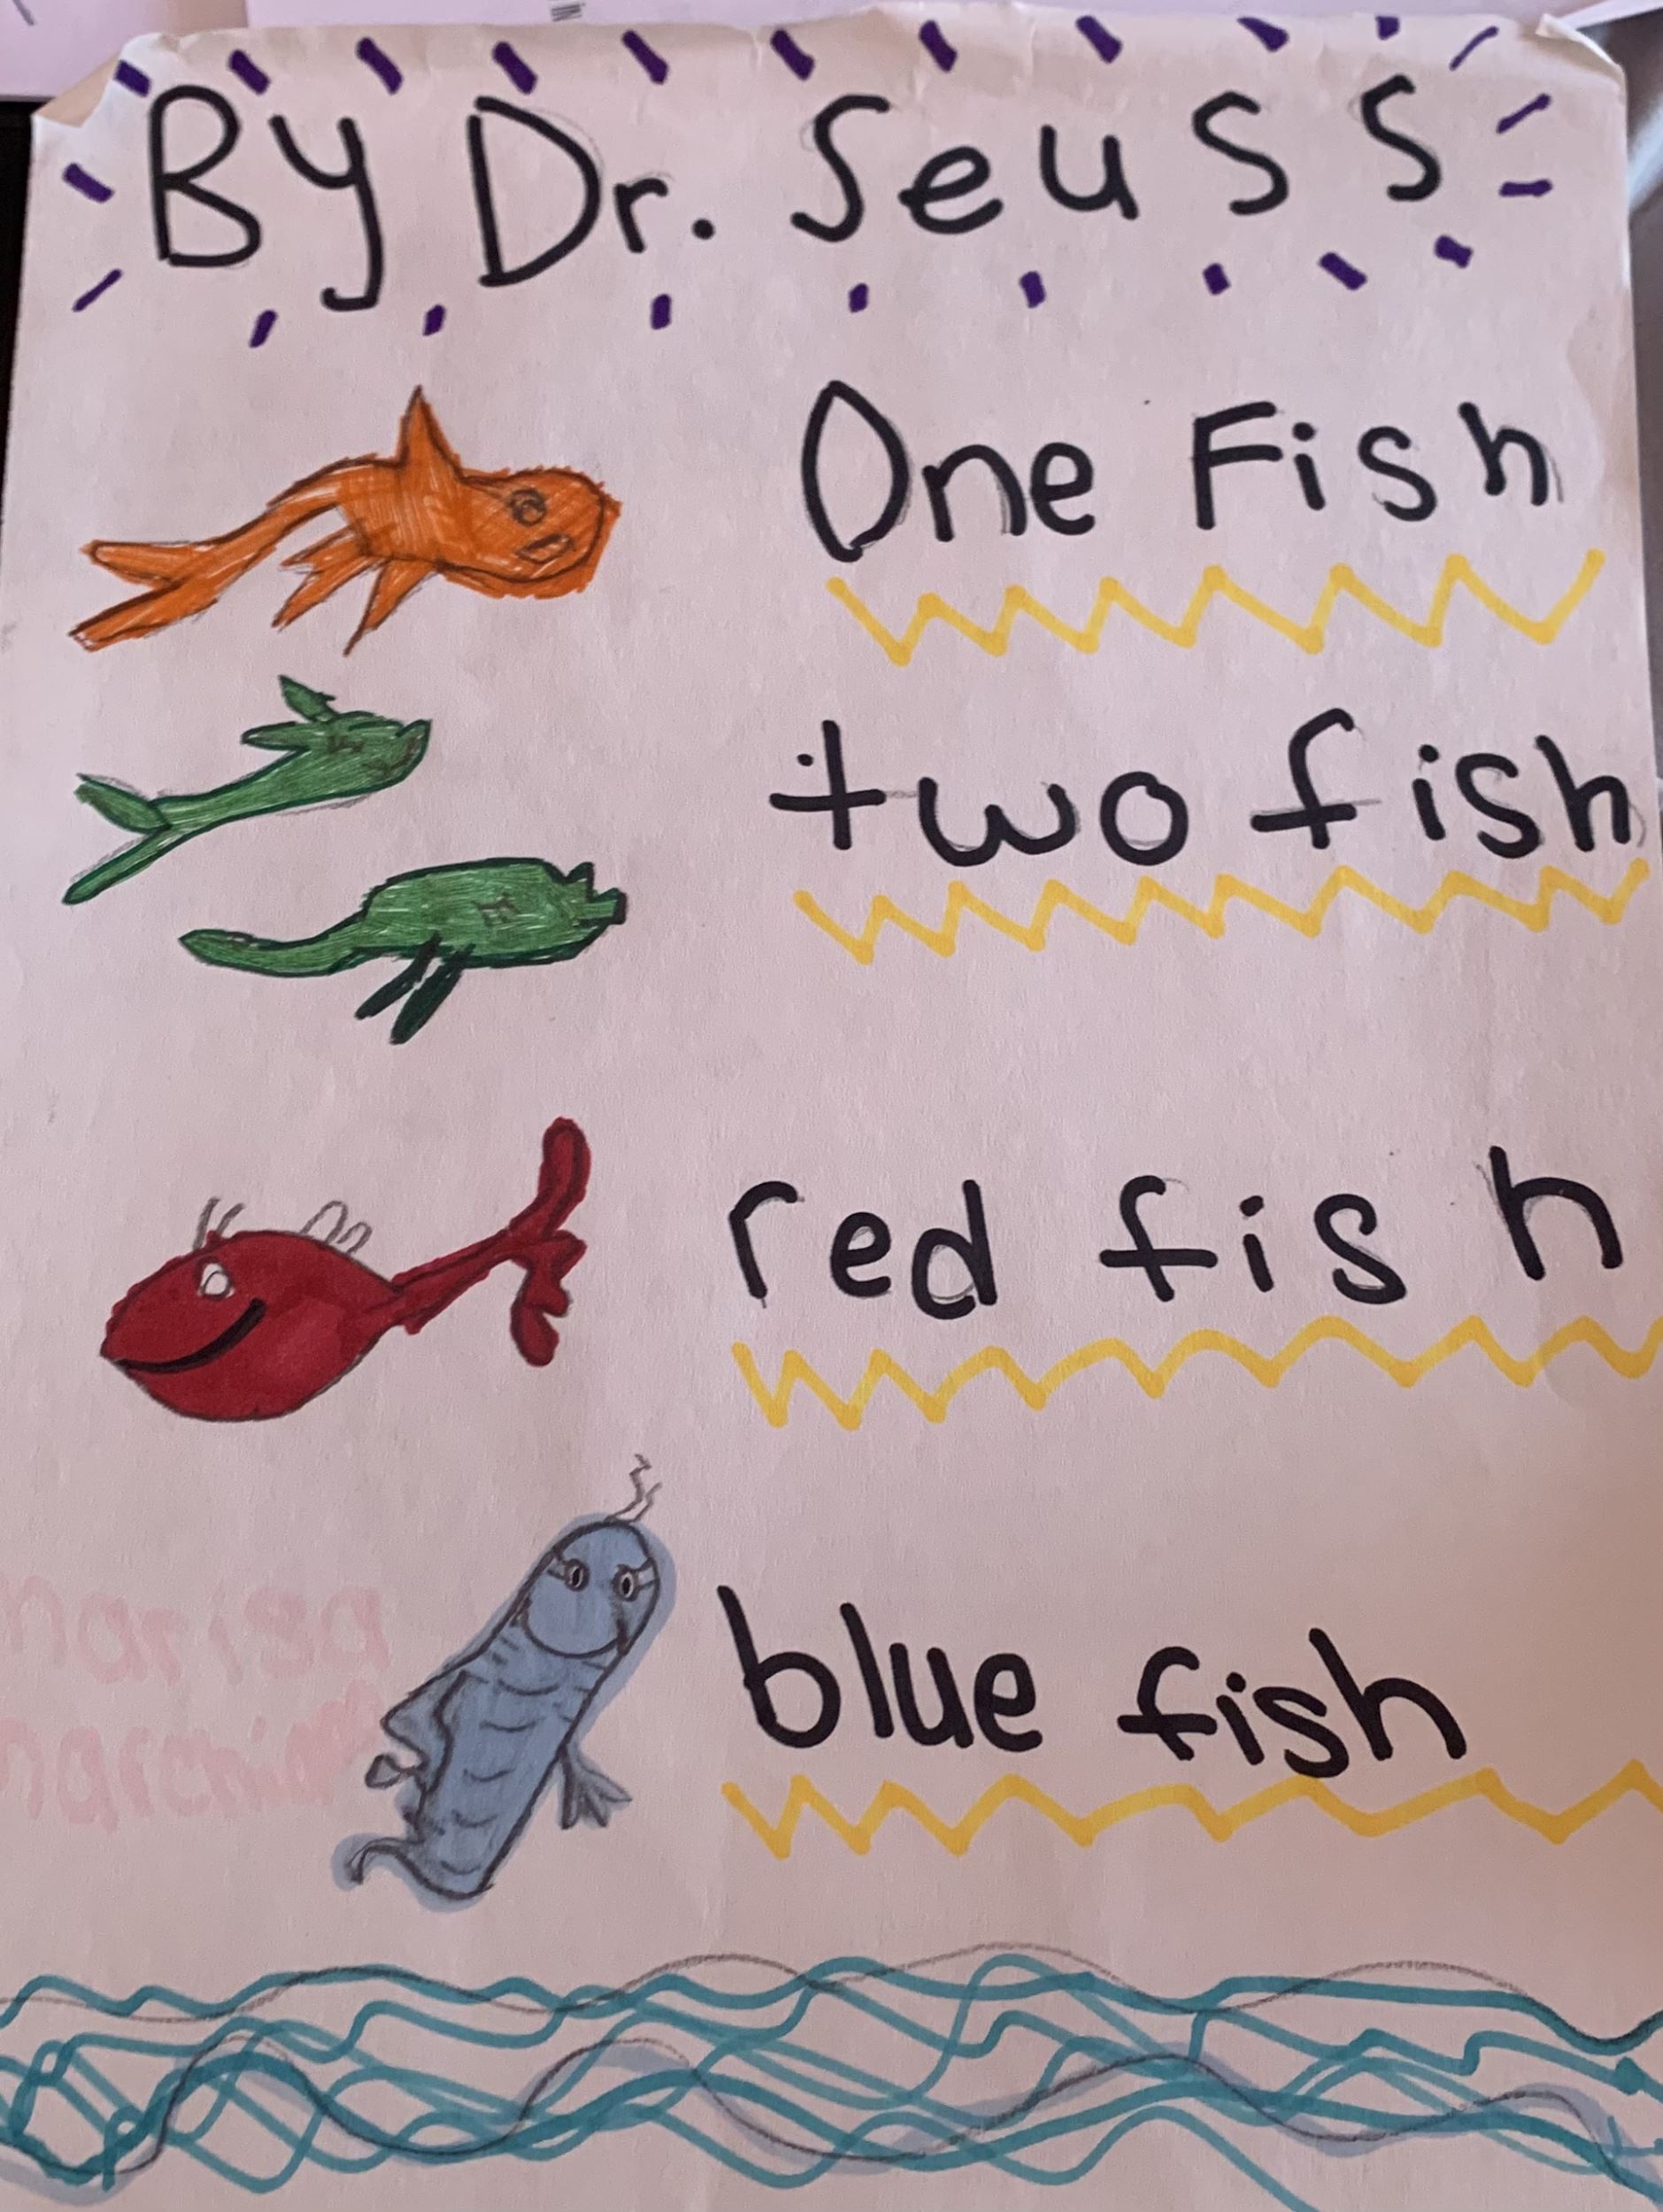 By Dr. Seuss
One Fish
two fish
red fish
blue fish
mariza